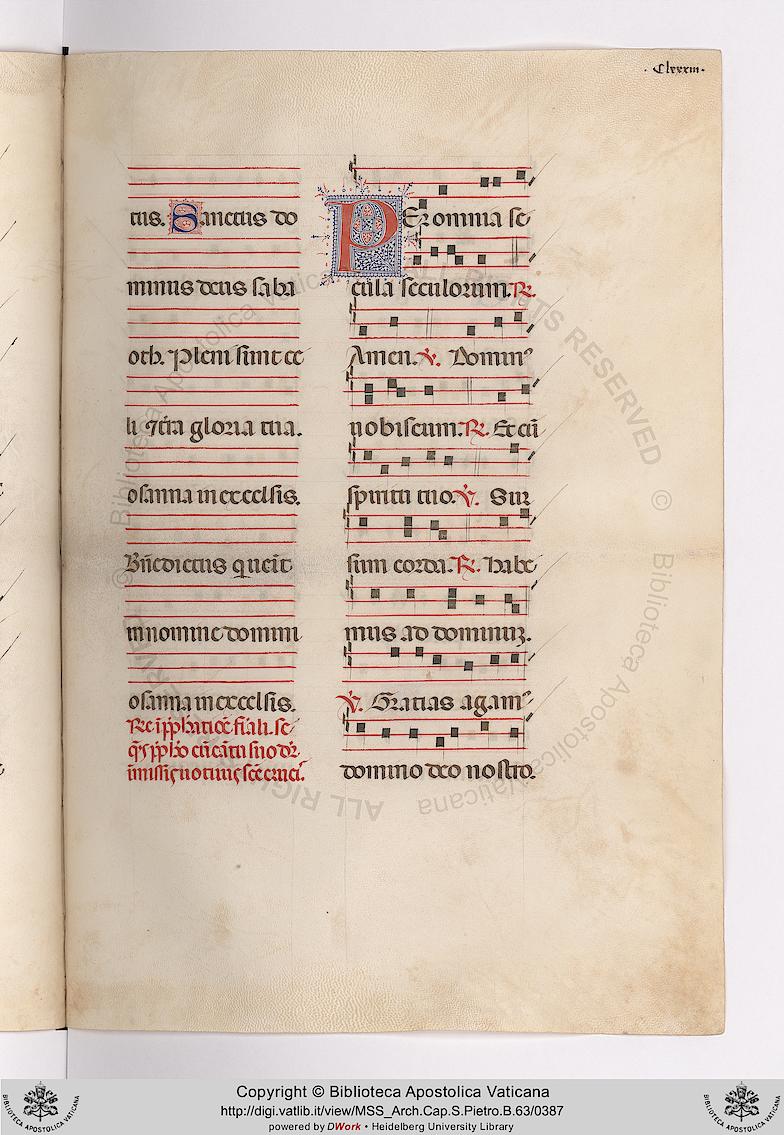 · Clxxxiii·
ctus. Sanctus do
minus deus saba
oth. Pleni sunt ce
li ⁊ t̄ra gloria tua.
osanna in excelsis.
Bn̄edictus q̄ uenit
in nomine domini
osanna in excelsis.
PEr omnia se
cula seculorum. ℟.
Amen. ℣. Dominꝰ
nobiscum. ℟. Et cū
spiritu tuo. ℣. Sur
sum corda. ℟. Habe
mus ad dominuꝫ.
℣. Gratias agamꝰ
domino deo nostro.
Copyright © Biblioteca Apostolica Vaticana
http://digi.vatlib.it/view/MSS_Arch.Cap.S.Pietro.B.63/0387
powered by DWork • Heidelberg University Library
BIBLIOTECA APOSTOLICA VATICANA
BIBLIOTECA APOSTOLICA VATICANA
© Biblioteca Apostolica Vaticana ALL RIGHTS RESERVED © Biblioteca Apostolica Vaticana ALL RIGHTS RESERVED